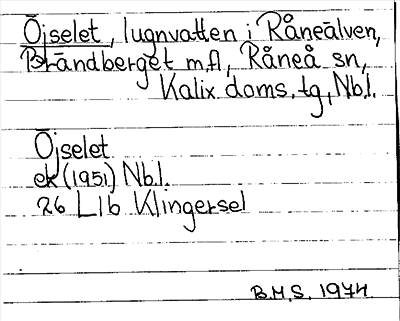 Öjselet, lugnvatten i Råneälven,
Brändberget m.fl, Råneå sn,
Kalix doms. tg, Nb.l.
Öjselet
ek (1951) Nb.l.
26 L1b Klingersel
B.M.S. 1974